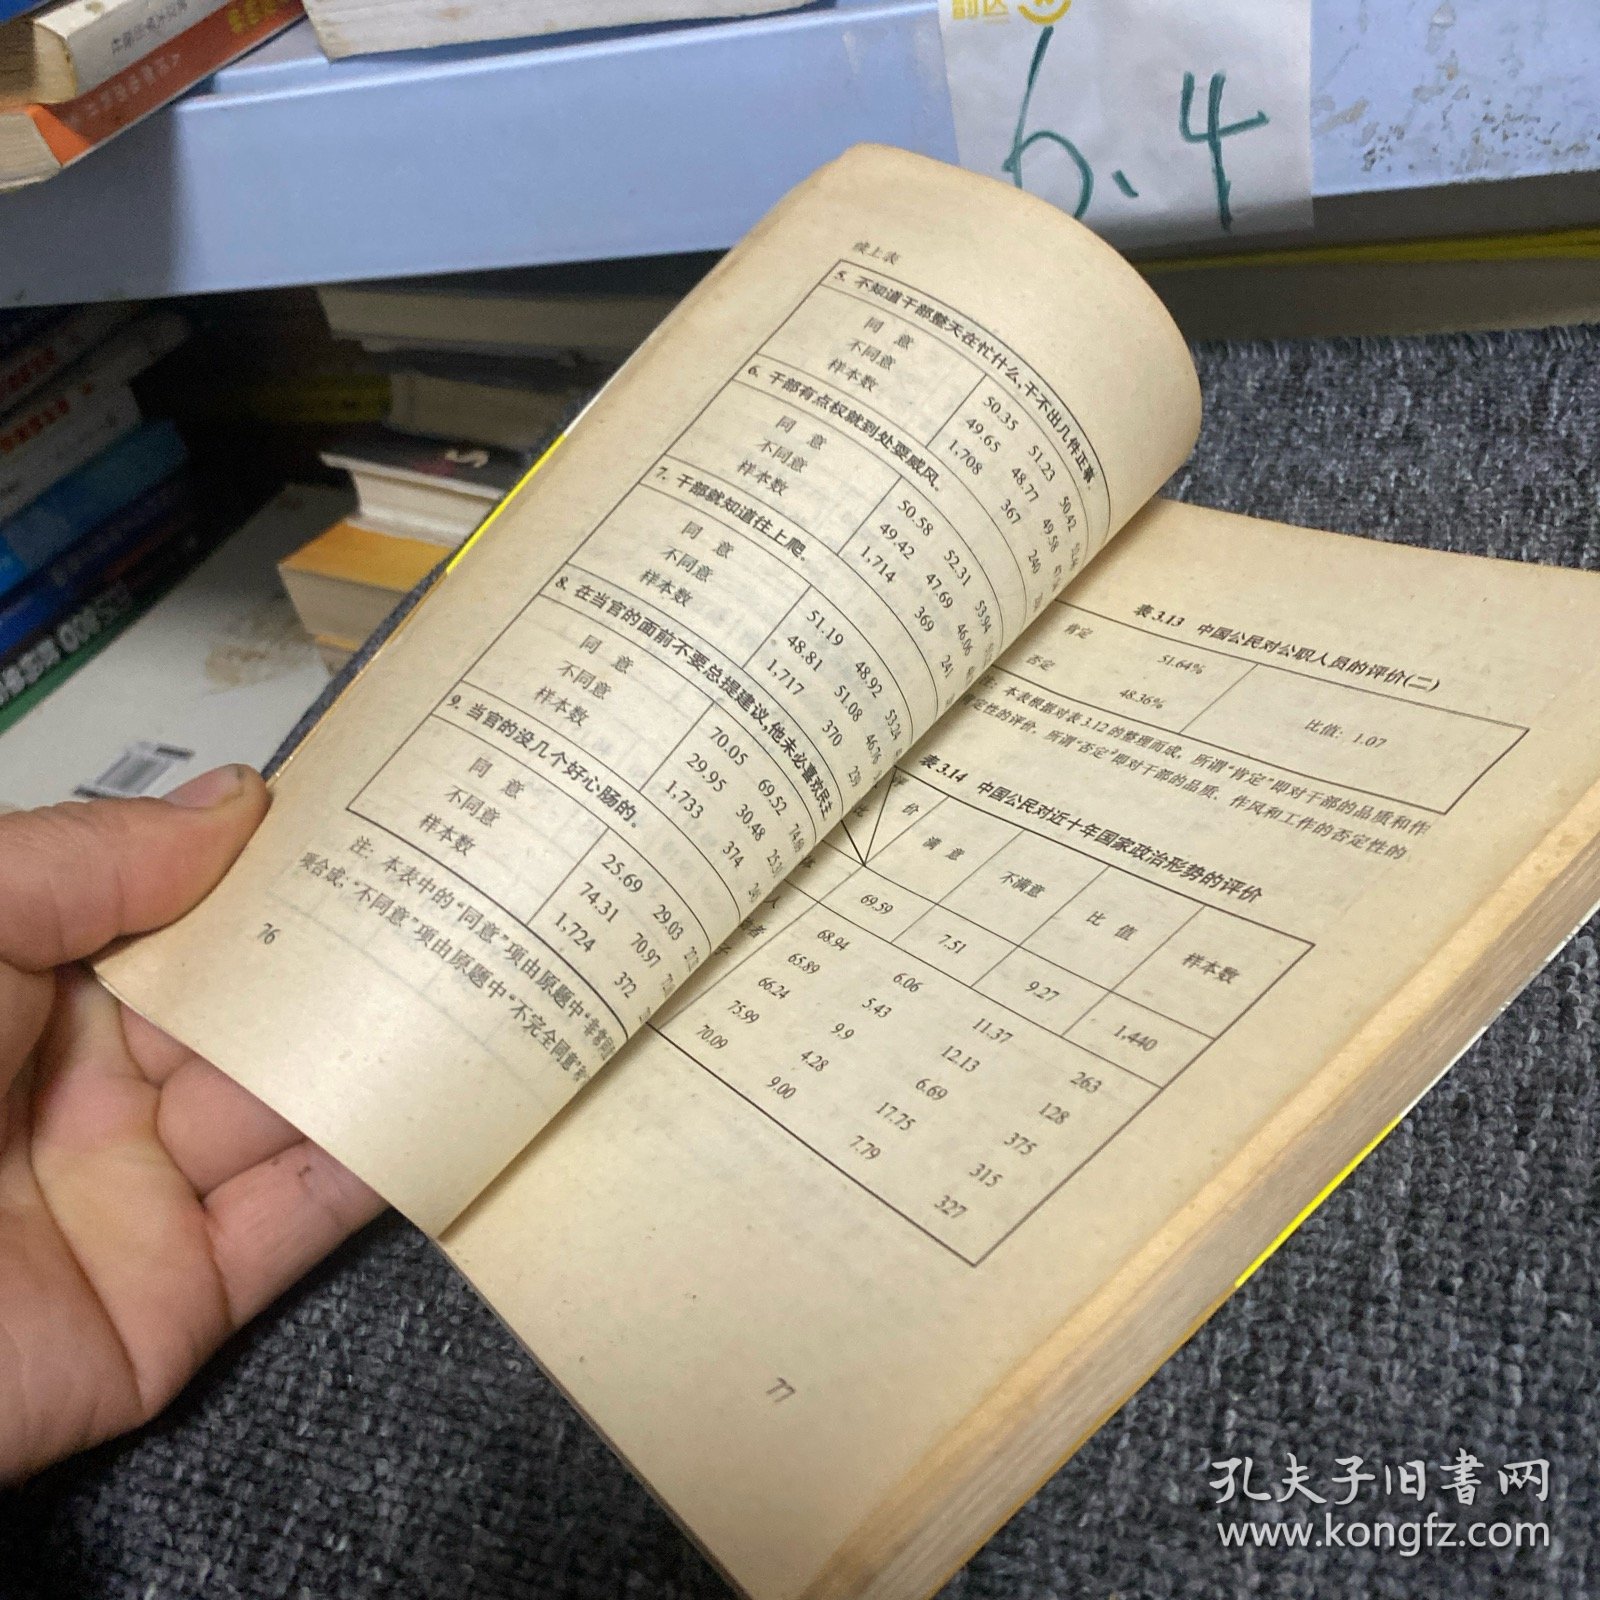 6.4
续上表
5. 不知道干部整天在忙什么,干不出几件正事。
同 意 50.35 51.23 50.42
不同意 49.65 48.77 49.58
样本数 1,708 367 240
6. 干部有点权就到处耍威风。
同 意 50.58 52.31 53.94
不同意 49.42 47.69 46.06
样本数 1,714 369 241
7. 干部就知道往上爬。
同 意 51.19 48.92 53.24
不同意 48.81 51.08 46.76
样本数 1,717 370 239
8. 在当官的面前不要总提建议,他未必喜欢民主
同 意 70.05 69.52
不同意 29.95 30.48
样本数 1,733 374
9. 当官的没几个好心肠的。
同 意 25.69 29.03
不同意 74.31 70.97
样本数 1,724 372
注: 本表中的“同意”项由原题中“非常同
项合成;“不同意”项由原题中“不完全同意”
76
表3.13 中国公民对公职人员的评价(二)
肯定 51.64%
否定 48.36%
比值: 1.07
注: 本表根据对表3.12的整理而成, 所谓“肯定”即对干部的品质和作
定性的评价, 所谓“否定”即对干部的品质、作风和工作的否定性的
表3.14 中国公民对近十年国家政治形势的评价
评 价 满 意 不满意 比 值 样本数
69.59 7.51 9.27 1,440
人 68.94 6.06 11.37 263
者 65.89 5.43 12.13 128
子 66.24 9.9 6.69 375
75.99 4.28 17.75 315
70.09 9.00 7.79 327
77
孔夫子旧书网
www.kongfz.com